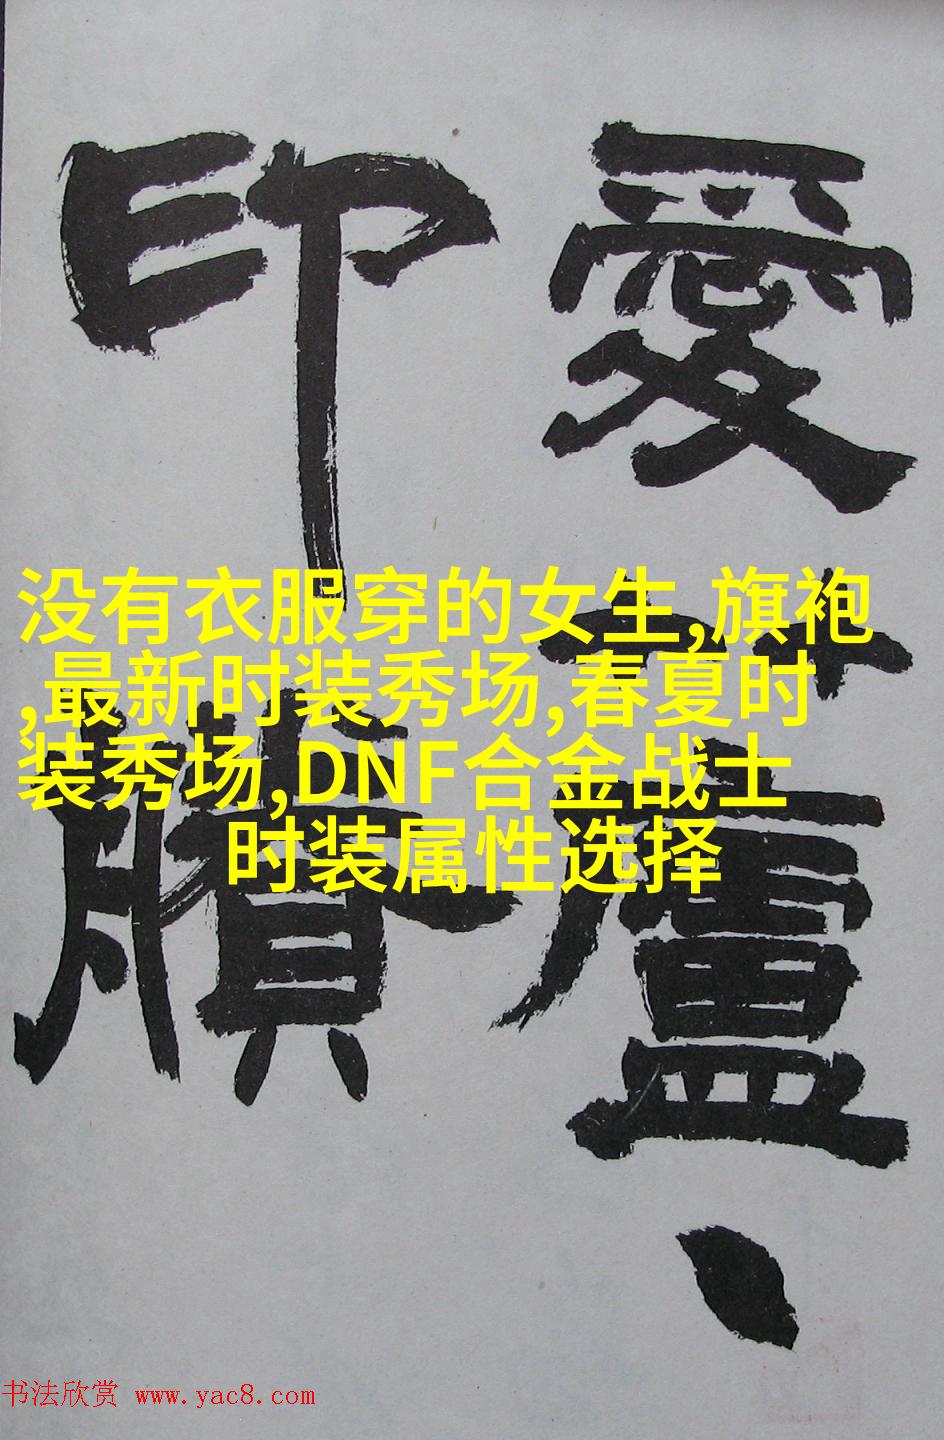 愛蘆
印賸
没有衣服穿的女生,旗袍
,最新时装秀场,春夏时
装秀场,DNF合金战士
时装属性选择
书法欣赏 www.yac8.com